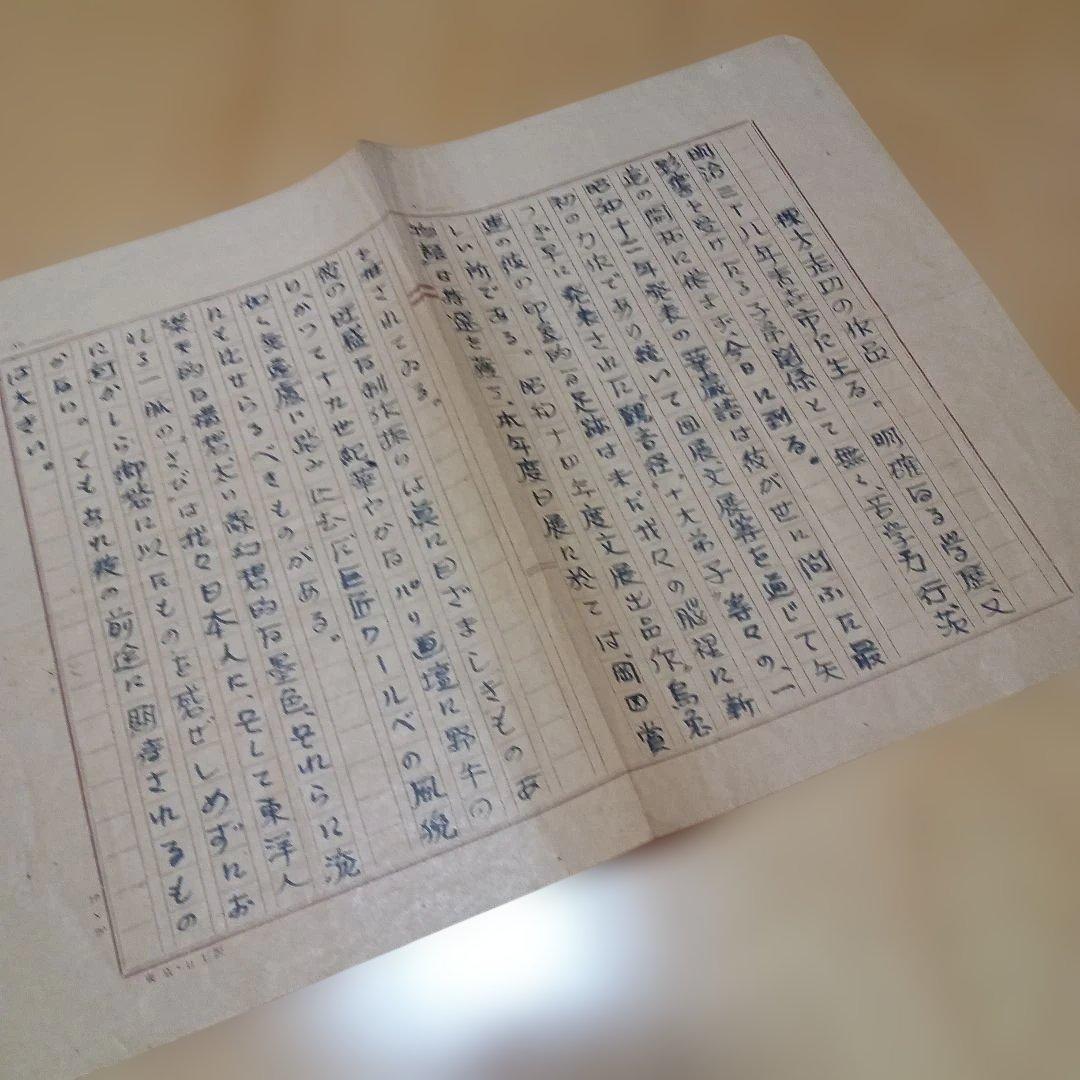 棟方志功の作品
明治三十八年青森市に生る。明確なる学歴、又
影響を受けたる子弟関係とて無く、苦学力行、茨
道の開拓に従事し今日に到る。
昭和十二年発表の華厳譜は彼が世に問ふた最
初の力作であり続いて国展文展等を通じて矢
つぎ早に発表された観音経、十大弟子、等々の、一
連の彼の印象的な足跡は未だ我々の脳裡に新
しい所である。昭和十四年度文展出品作、
は特選を本年度日展に於ては、岡田賞
を推されてゐる。
彼の旺盛な制作振りは真に目ざましきものあ
り、かつて十九世紀華やかなパリ画壇に野牛の
如く無遠慮に踏みこむだ巨匠クールベの風貌
にも比せらるべきものがある。
楽天的な構想太い線幻想的な墨色、それらに流
れる一脈の、さびは我々日本人に、そして東洋人
に何かしら郷愁に似たものを感ぜしめずにお
かない。ともあれ彼の前途に期待されるもの
は大きい。